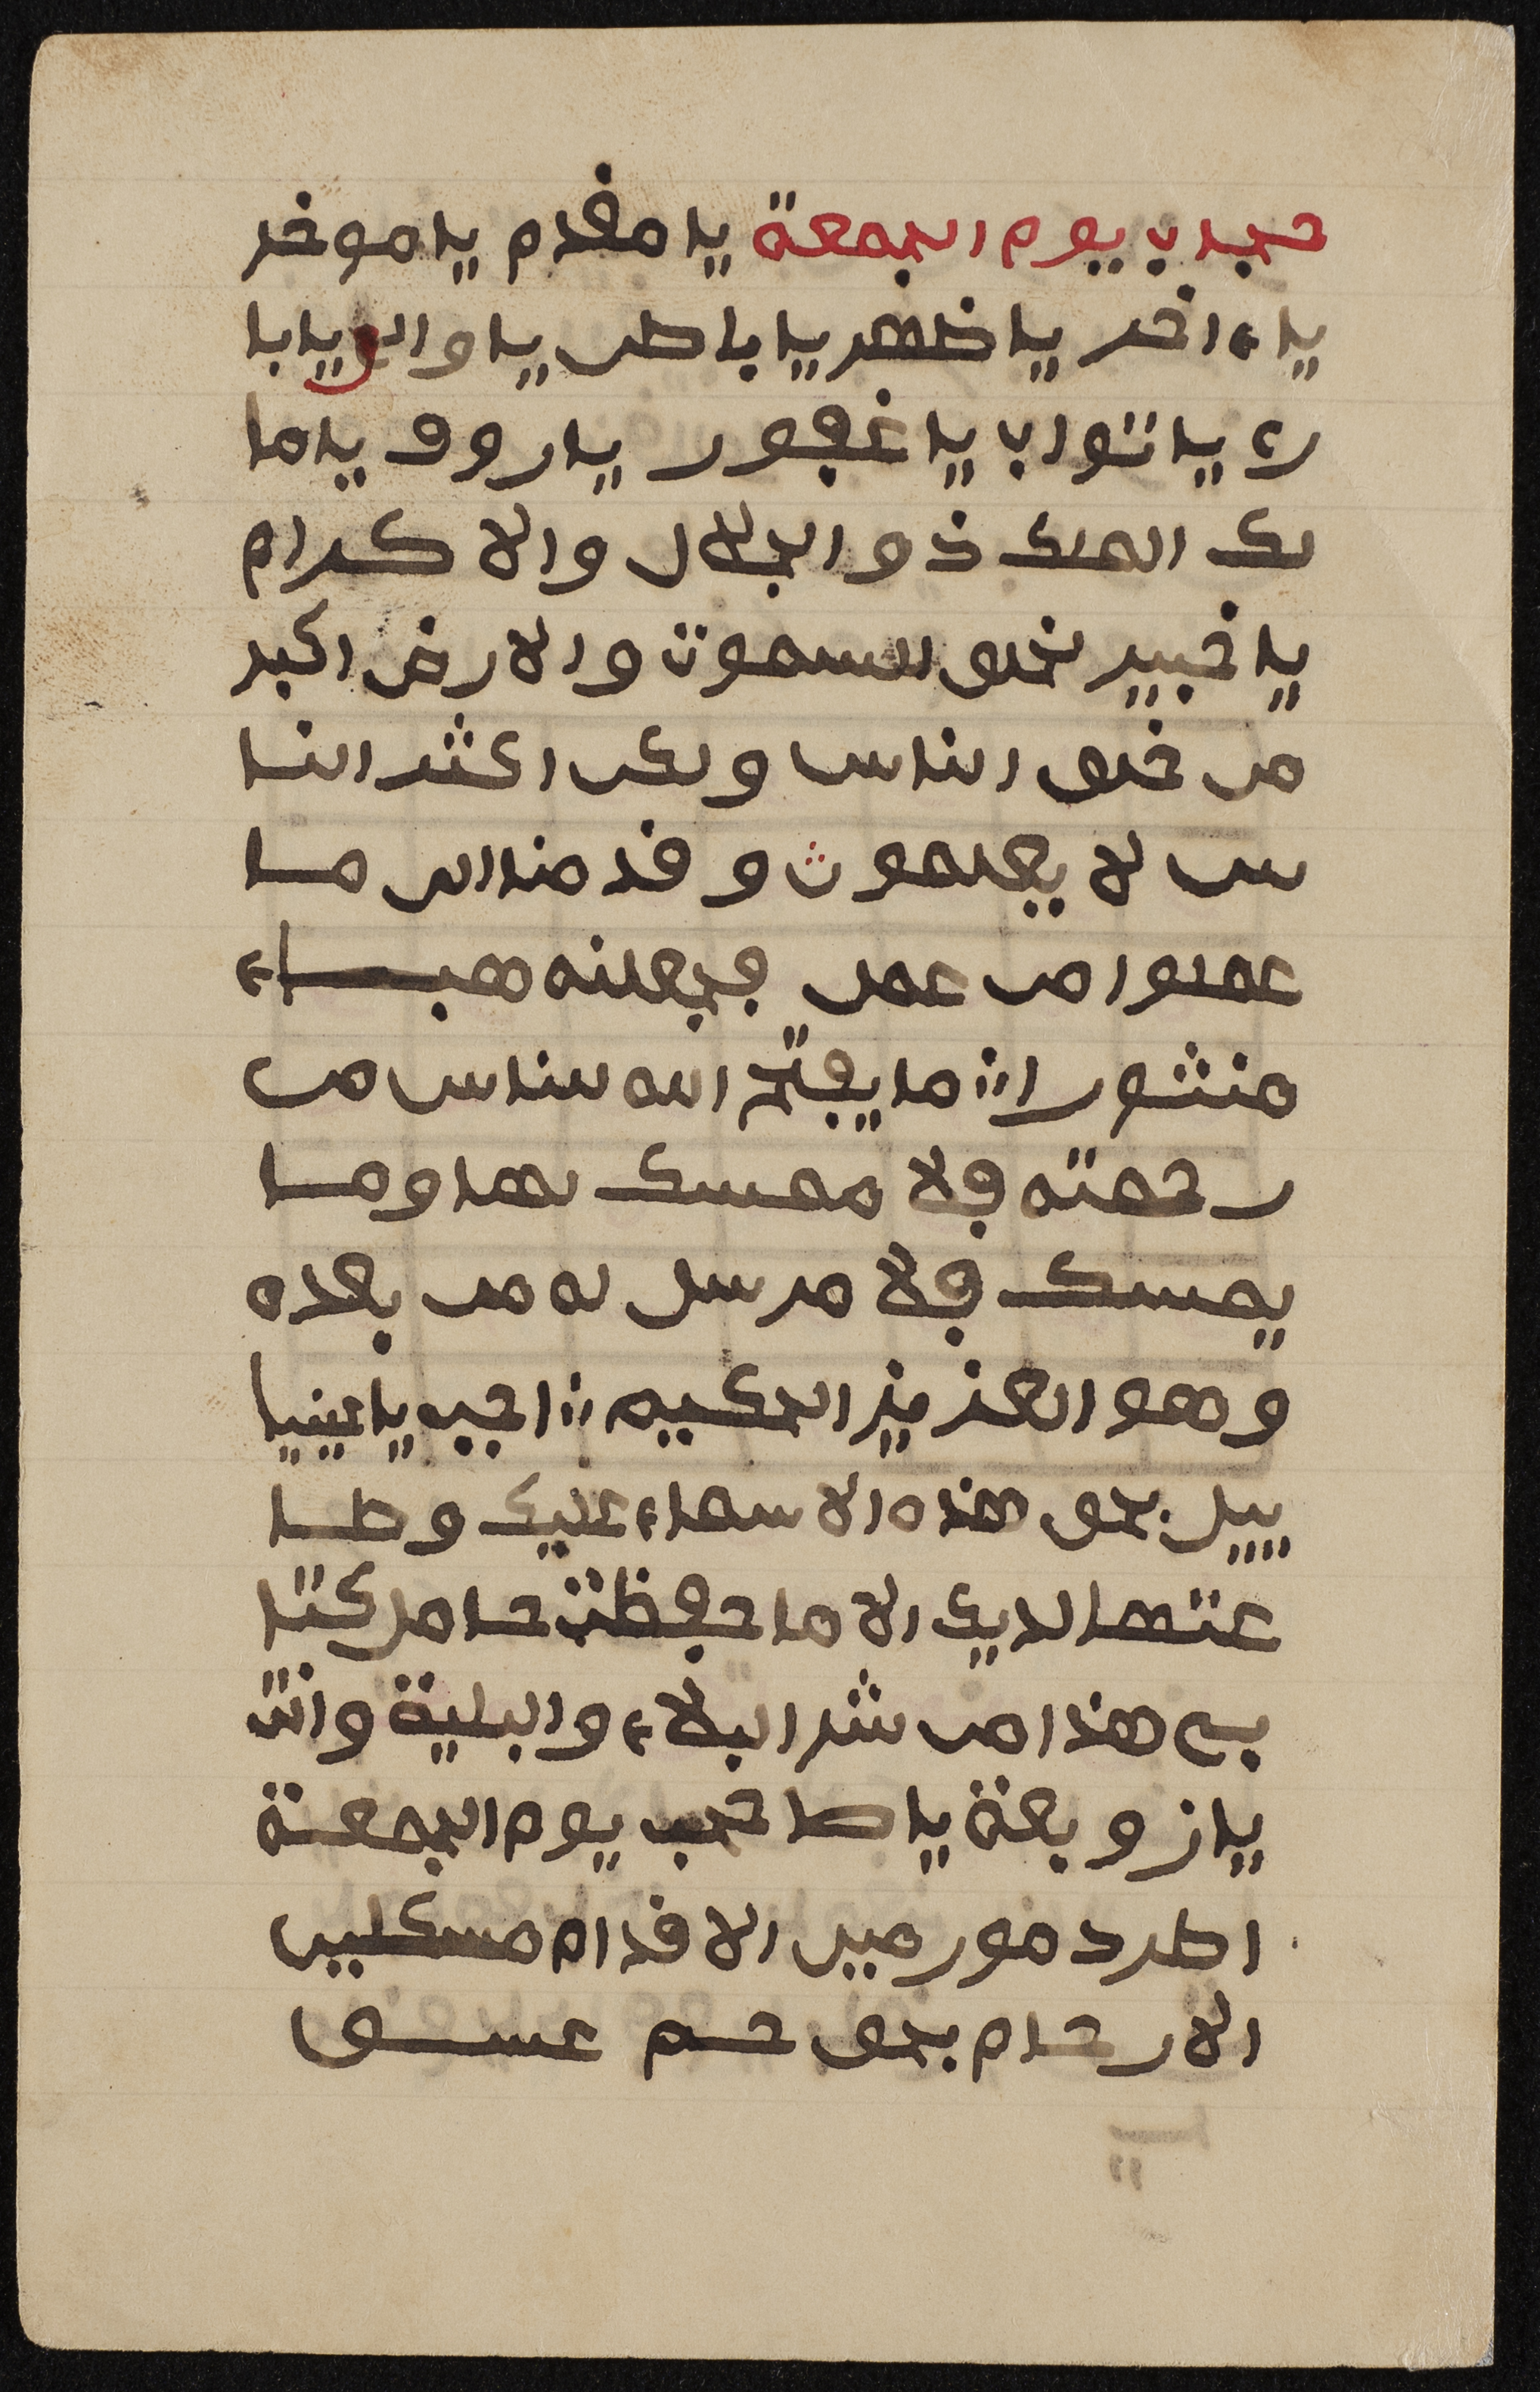 حجاب يوم الجمعة يا مقدم يا موخر
ياء اخر يا ظهر يا باطن يا والي يا با
رء يا تواب يا غفور يا روف يا ما
لك الملك ذو الجلال والاكرام
يا خبير لخلق السموت والارض اكبر
من خلق الناس ولكن اكثر النا
س لا يعلمون وقدمنا الى ما
عملوا من عمل فجعلنه هباء
منثورا ما يفتح الله للناس من
رحمته فلا ممسك لها وما
يمسك فلا مرسل له من بعده
وهو العزيز الحكيم اجب يا عينيا
ييل بحق هذه الاسماء عليك وطا
عتها لديك الا ما حفظت حامل كتا
بي هذا من شر البلاء والبلية وانت
يا زوبعة يا صاحب يوم الجمعة
اطرد مورمين الاقدام مسكلين
الارحام بحق حم عسق